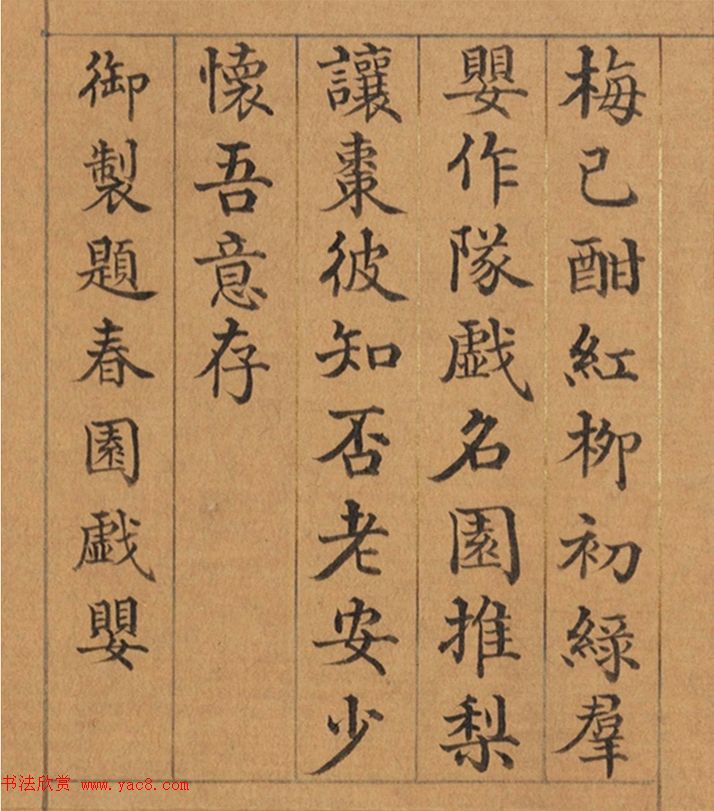 梅已酣紅柳初綠羣
嬰作隊戲名園推梨
讓棗彼知否老安少
懷吾意存
御製題春園戲嬰
书法欣赏 www.yac8.com